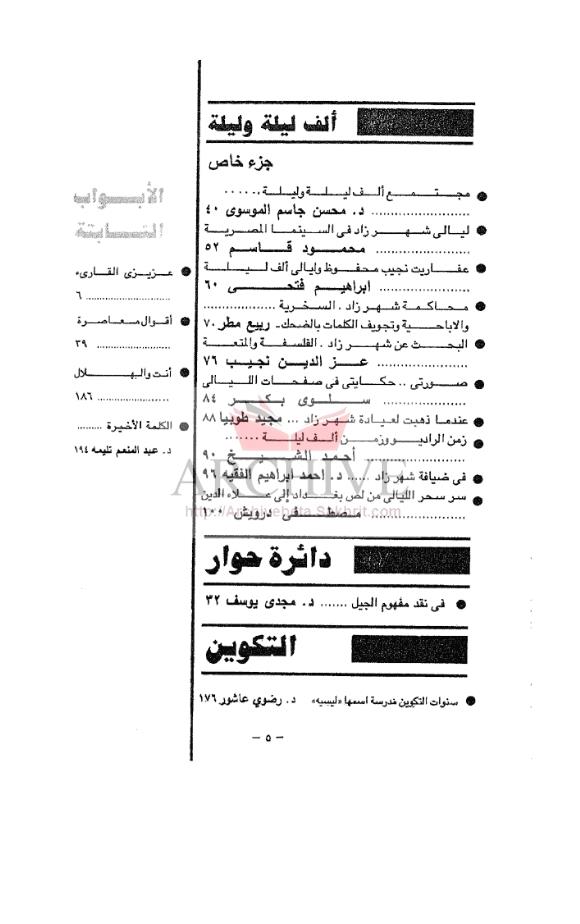 ألف ليلة وليلة
جزء خاص
● مجتمع ألف ليلة وليلة ......
......................... د. محسن جاسم الموسوى ٤٠
● ليالى شهر زاد فى السينما المصرية
......................... محمود قاسم ٥٢
● عفاريت نجيب محفوظ وليالى ألف ليلة
......................... ابراهيم فتحى ٦٠
● محاكمة شهر زاد . السخرية ..................
والاباحية وتجويف الكلمات بالضحك . ربيع مطر ٧٠
● البحث عن شهر زاد . الفلسفة والمتعة
......................... عز الدين نجيب ٧٦
● صورتى .. حكايتى فى صفحات الليالى
......................... سلوى بكر ٨٤
● عندما ذهبت لعيادة شهر زاد ... مجيد طوبيا ٨٨
● زمن الراديو وزمن ألف ليلة .......
......................... أحمد الشيخ ٩٠
● فى ضيافة شهر زاد ...... د. احمد ابراهيم الفقيه ٩٦
● سر سحر الليالى من لص بغداد إلى علاء الدين
......................... مصطفى درويش ١٠٠
دائرة حوار
● فى نقد مفهوم الجيل ....... د. مجدى يوسف ٣٢
التكوين
● سنوات التكوين مدرسة اسمها «ليسيه» د. رضوي عاشور ١٧٦
الأبواب
الثابتة
● عزيزى القارىء
......................... ٦
● أقوال معاصرة
......................... ٣٩
● أنت والهلال
......................... ١٨٦
● الكلمة الأخيرة .........
د. عبد المنعم تليمه ١٩٤
- ٥ -
ARCHIVE
http://Archivebeta.Sakhrit.com